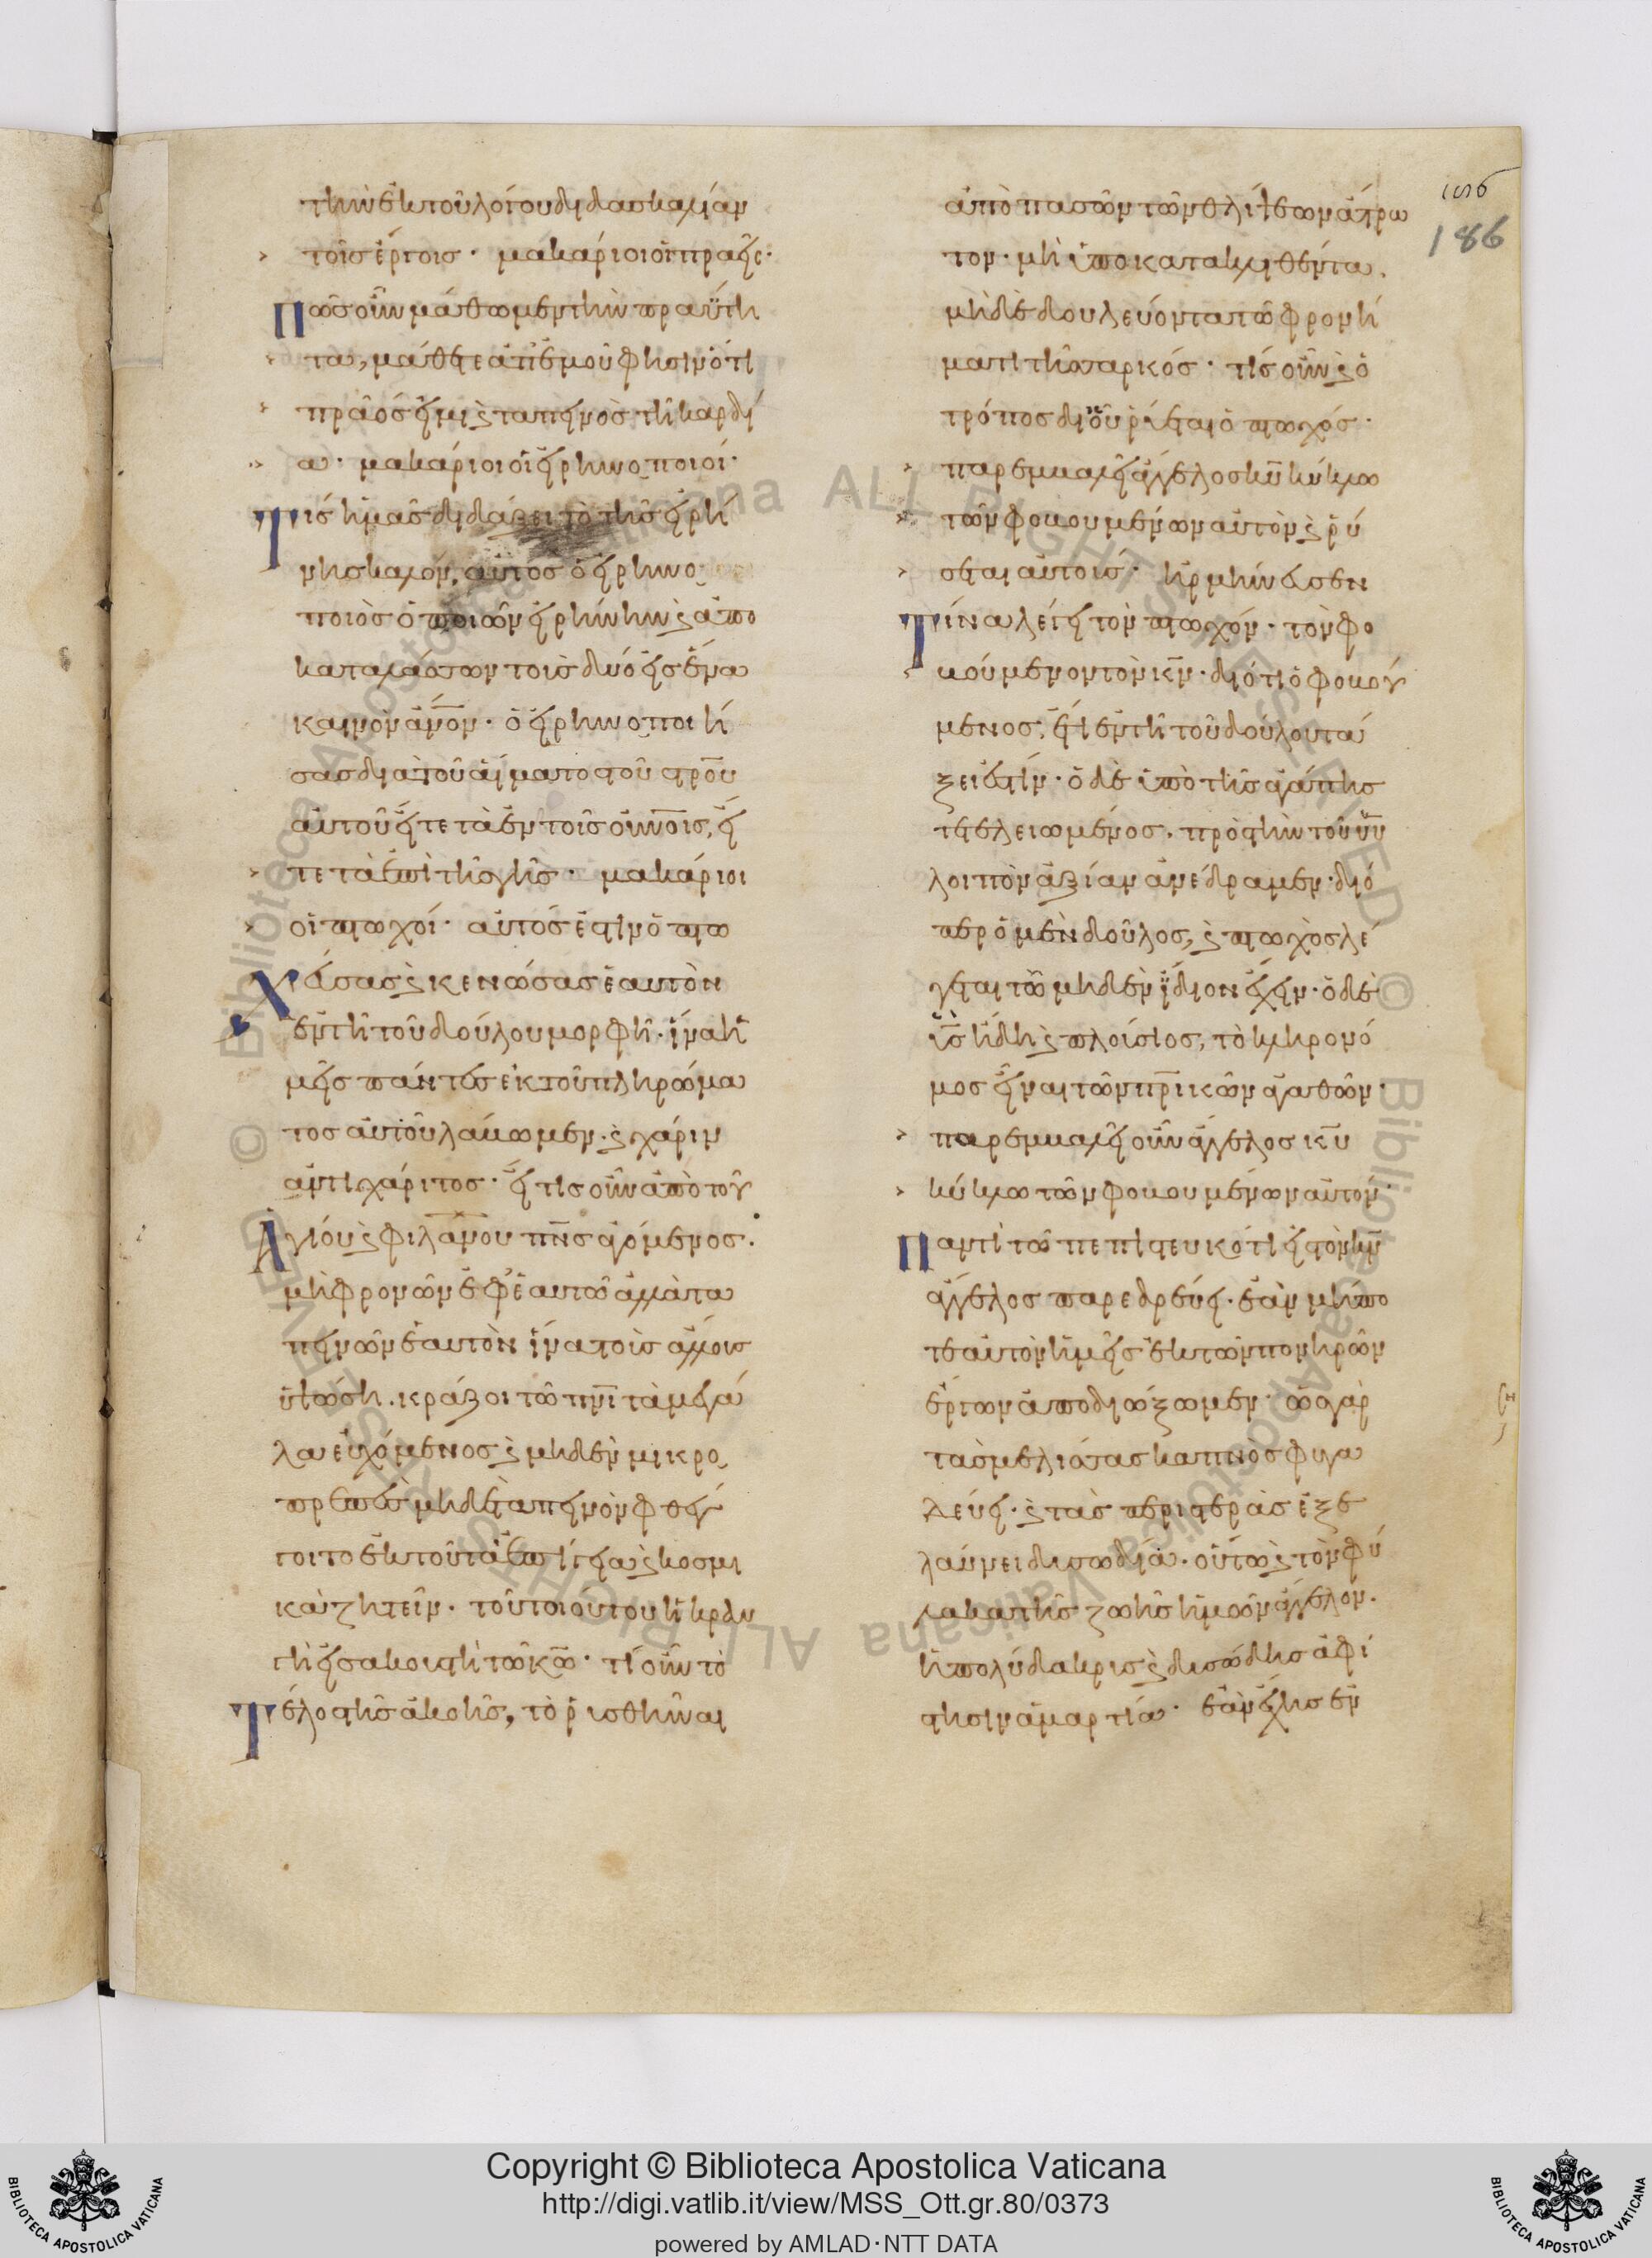 τὴν ἐκ τοῦ λόγου διδασκαλίαν
τοῖς ἔργοις· μακάριοι οἱ πραεῖς·
Πῶς οὖν μάθωμεν τὴν πραΰτη
τα, μάθετε ἀπ' ἐμοῦ φησιν ὅτι
πρᾶός εἰμι ϗ ταπεινὸς τῆ καρδί
α· μακάριοι οἱ εἰρηνοποιοί·
Τίς ἡμᾶς διδάξει τὸ τῆς εἰρή
νης καλόν, αὐτὸς ὁ εἰρηνο
ποιὸς ὁ ποιῶν εἰρήνην ϗ ἀπο
καταλάσσων τοὺς δύο εἰς ἕνα
καινὸν ἄνον· ὁ εἰρηνοποιή
σας διὰ τοῦ αἵματος τοῦ στρου
αὐτοῦ εἴτε τὰ ἐν τοῖς οὐνοις, εἴ
τε τὰ ἐπὶ τῆς γῆς· μακάριοι
οἱ πτωχοί· αὐτός ἐστιν ὁ πτω
χεύσας ϗ κενώσας ἑαυτὸν
ἐν τῆ τοῦ δούλου μορφῆ· ἵνα ἡ
μεῖς πάντες ἐκ τοῦ πληρώμα
τος αὐτοῦ λάβωμεν· ϗ χάριν
ἀντὶ χάριτος· εἴ τις οὖν ἀπὸ τοῦ
Ἁγίου ϗ φιλανου πνς ἀγόμενος·
μὴ φρονῶν ἐφ' ἑαυτῶ ἀλλὰ τα
πεινῶν ἑαυτὸν ἵνα τοὺς ἄλλους
ὑψώση. κράζοι τῶ πνι τὰ μεγά
λα εὐχόμενος ϗ μηδὲν μικρο
πρεπὲς μηδὲ ταπεινὸν φθέγ
γοιτο ἐκ τοῦ τὰ ἐπίγεια ϗ κοσμι
κὰ ζητεῖν· τοῦ τοιούτου ἡ κραυ
γὴ εἰσακουστὴ τῶ κω· τί οὖν τὸ
Τέλος τῆς ἀκοῆς, τὸ ῥυσθῆναι
ἀπὸ πασῶν τῶν θλίψεων ἄτρω
τον· μὴ ὑποκατακλιθέντα,
μηδὲ δουλεύοντα τῶ φρονή
ματι τῆς σαρκός· τίς οὖν ϗ ὁ
τρόπος δι' οὗ ῥύεται ὁ πτωχός·
παρεμβαλεῖ ἄγγελος κυ κύκλω
τῶν φοβουμένων αὐτὸν ϗ ῥύ
σεται αὐτούς· ἡρμήνευσεν
Τίνα λέγει τὸν πτωχόν· τὸν φο
βούμενον τὸν κν· διότι ὁ φοβού
μενος, ἔτι ἐν τῆ τοῦ δούλου τά
ξει ἐστίν· ὁ δὲ ὑπὸ τῆς ἀγάπης
τετελειωμένος, πρὸς τὴν τοῦ υυ
λοιπὸν ἀξίαν ἀνέδραμεν· διό
περ ὁ μὲν δοῦλος, ϗ πτωχὸς λέ
γεται τῶ μηδὲν ἴδιον ἔχειν· ὁ δὲ
υς ἤδη ϗ πλούσιος, τὸ κληρονό
μος εἶναι τῶν πρικῶν ἀγαθῶν·
παρεμβαλεῖ οὖν ἄγγελος κυ
κύκλω τῶν φοβουμένων αὐτόν·
Παντὶ τῶ πεπιστευκότι εἰς τὸν κν
ἄγγελος παρεδρεύει· ἐὰν μήπο
τε αὐτὸν ἡμεῖς ἐκ τῶν πονηρῶν
ἔργων ἀποδιώξωμεν· ὡς γὰρ
τὰς μελίσσας καπνὸς φυγα
δεύει· ϗ τὰς περιστερὰς ἐξε
λαύνει δυσωδία· οὕτως ϗ τὸν φύ
λακα τῆς ζωῆς ἡμῶν ἄγγελον·
ἡ πολύδακρυς ϗ δυσώδης ἀφί
στησιν ἁμαρτία· ἐὰν ἔχης ἐν
186
Copyright © Biblioteca Apostolica Vaticana
http://digi.vatlib.it/view/MSS_Ott.gr.80/0373
powered by AMLAD·NTT DATA